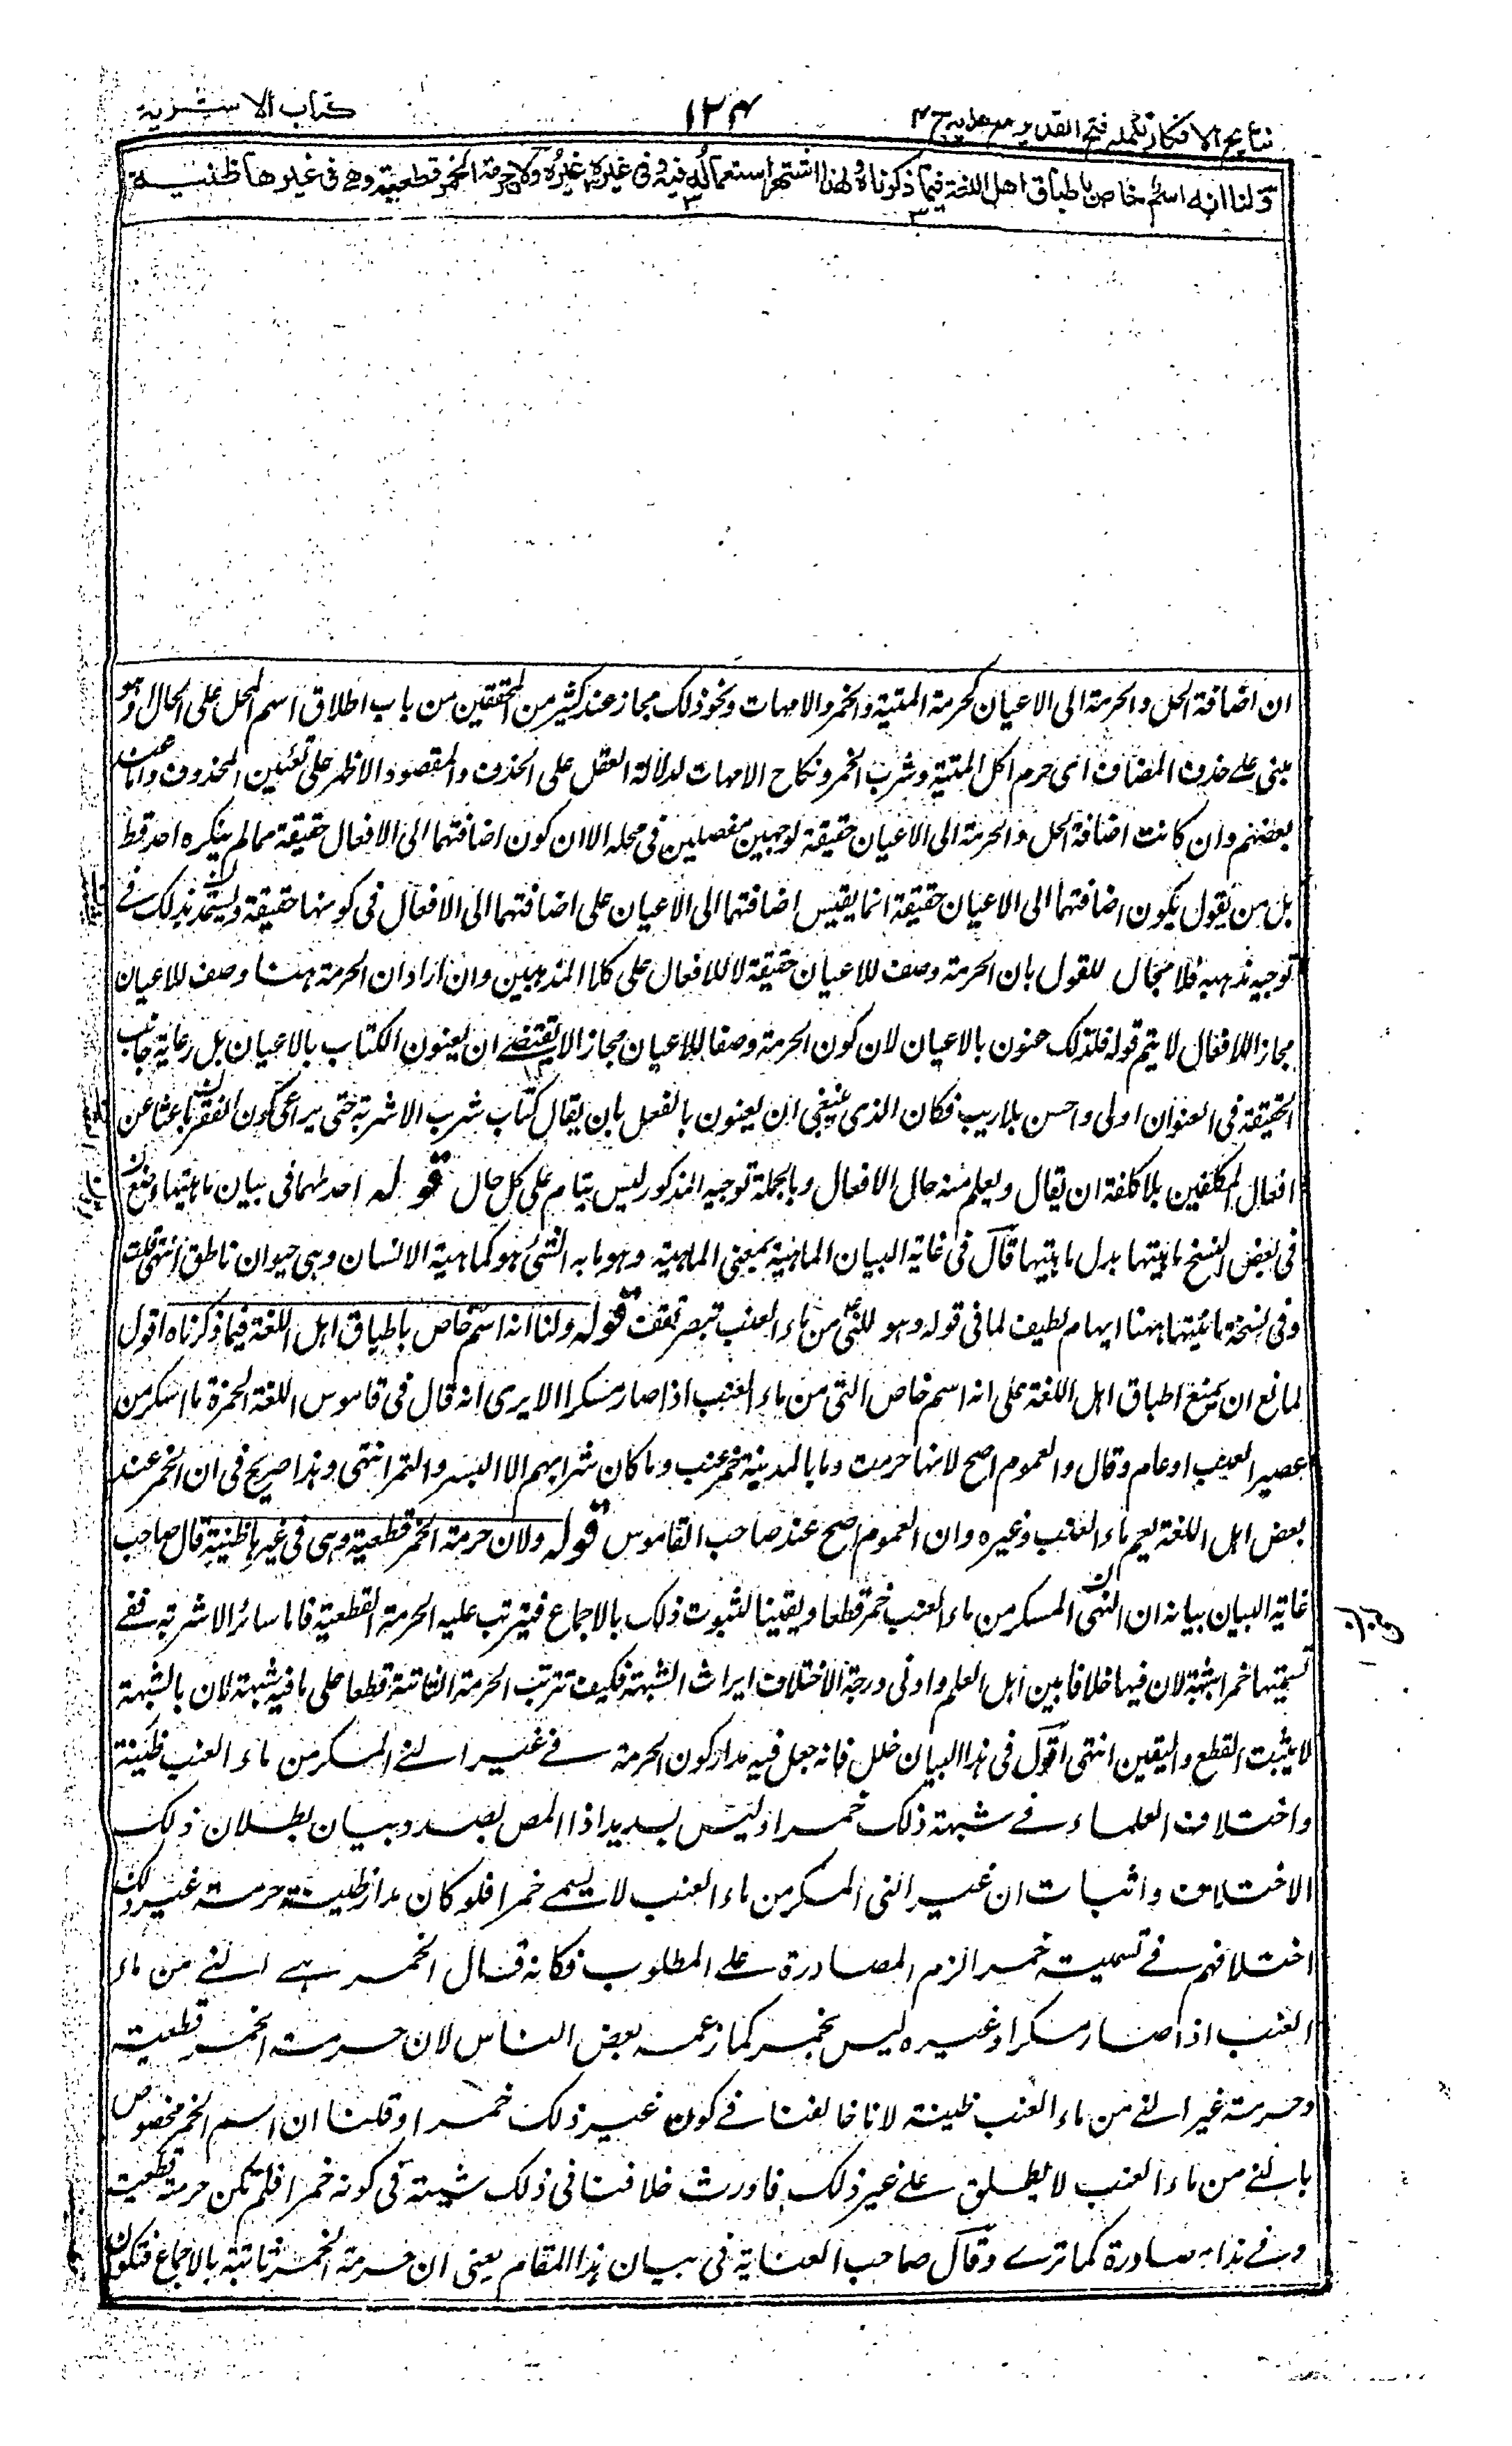 نتايج الافكار تكملہ فتح القدير مع هدايہ ج ٤
١٢٤
كتاب الاشربة
ولنا انه اسم خاص باطباق اهل اللغة فيما ذكرناه ولهذا اشتهر استعماله فيه وفى غيره غيره ولان حرمة الخمر قطعية وهى فى غيرها ظنية
ان اضافة الحل والحرمة الى الاعيان كحرمة الميتة والخمر والامهات ونحو ذلك مجاز عند كثير من المحققين من باب اطلاق اسم المحل على الحال او هو
مبنى على حذف المضاف اى حرم اكل الميتة وشرب الخمر ونكاح الامهات لدلالة العقل على الحذف والمقصود الاظهر على تعيين المحذوف واما عند
بعضهم وان كانت اضافة الحل والحرمة الى الاعيان حقيقة لوجهين مفصلين فى محله الا ان كون اضافتهما الى الافعال حقيقة مما لم ينكره احد قط
بل من يقول بكون اضافتهما الى الاعيان حقيقة انما يقيس اضافتهما الى الاعيان على اضافتهما الى الافعال فى كونها حقيقة وليستمد بذلك فى
توجيه مذهبه فلا مجال للقول بان الحرمة وصف للاعيان حقيقة لا للافعال على كلا المذهبين وان اراد ان الحرمة ههنا وصف للاعيان
مجازا لا للافعال لا يتم قوله فلذلك عنون بالاعيان لان كون الحرمة وصفا للاعيان مجازا لا يقتضى ان يعنون الكتاب بالاعيان بل رعاية جانب
الحقيقة فى العنوان اولى واحسن بلا ريب فكان الذى ينبغى ان يعنون بالفعل بان يقال كتاب شرب الاشربة حتى يراعى كون الفقه باحثا عن
افعال المكلفين بلا كلفة ان يقال ويعلم منه حال الافعال وبالجملة توجيه المذكور ليس بتام على كل حال قوله احدهما فى بيان ماهيتها وقع
فى بعض النسخ مائيتها بدل ماهيتها قال فى غاية البيان المائية بمعنى الماهية وهو ما به الشئ هو كماهية الانسان وهى حيوان ناطق انتهى قلت
وفى نسخة مائيتها ههنا ايهام لطيف لما فى قوله وهو للنئ من ماء العنب تبصر تقف قوله ولنا انه اسم خاص باطباق اهل اللغة فيما ذكرناه اقول
لمانع ان يمنع اطباق اهل اللغة على انه اسم خاص النئ من ماء العنب اذا صار مسكرا الا يرى انه قال فى قاموس اللغة الخمرة ما اسكر من
عصير العنب او عام وقال والعموم اصح لانها حرمت وما بالمدينة خمر عنب وما كان شرابهم الا البسر والتمر انتهى وهذا صريح فى ان الخمر عند
بعض اهل اللغة يعم ماء العنب وغيره وان العموم اصح عند صاحب القاموس قوله ولان حرمة الخمر قطعية وهى فى غيرها ظنية قال صاحب
غاية البيان بيانه ان النئ المسكر من ماء العنب خمر قطعا ويقينا لثبوت ذلك بالاجماع فيترتب عليه الحرمة القطعية فاما سائر الاشربة ففى
تسميتها خمرا شبهة لان فيها خلافا بين اهل العلم وادنى درجة الاختلاف ايراث الشبهة فكيف تترتب الحرمة الثابتة قطعا على ما فيه شبهة لان بالشبهة
لا يثبت القطع واليقين انتهى اقول فى هذا البيان خلل فانه جعل فيه مدار كون الحرمة فى غير النئ المسكر من ماء العنب ظنية
واختلاف العلماء فى شبهة ذلك خمرا وليس بسديد اذ المص بصدد بيان بطلان ذلك
الاختلاف واثبات ان غير النئ المسكر من ماء العنب لا يسمى خمرا فلو كان مدار ظنية حرمة غير ذلك
اختلافهم فى تسميته خمرا لزم المصادرة على المطلوب فكانه قال الخمر هى النئ من ماء
العنب اذا صار مسكرا وغيره ليس بخمر كما زعمه بعض الناس لان حرمة الخمر قطعية
وحرمة غير النئ من ماء العنب ظنية لانا خالفنا فى كون غير ذلك خمرا وقلنا ان اسم الخمر مخصوص
بالنئ من ماء العنب لا يطلق على غير ذلك فاورث خلافنا فى ذلك شبهة فى كونه خمرا فلم تكن حرمة قطعية
وفى هذا مصادرة كما ترى وقال صاحب العناية فى بيان هذا المقام يعنى ان حرمة الخمر ثابتة بالاجماع فتكون